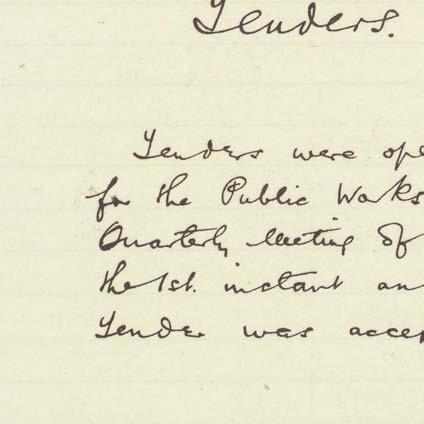 Tenders.
Tenders were ope
for the Public Works
Quarterly Meeting of
the 1st. instant an
Tender was accep